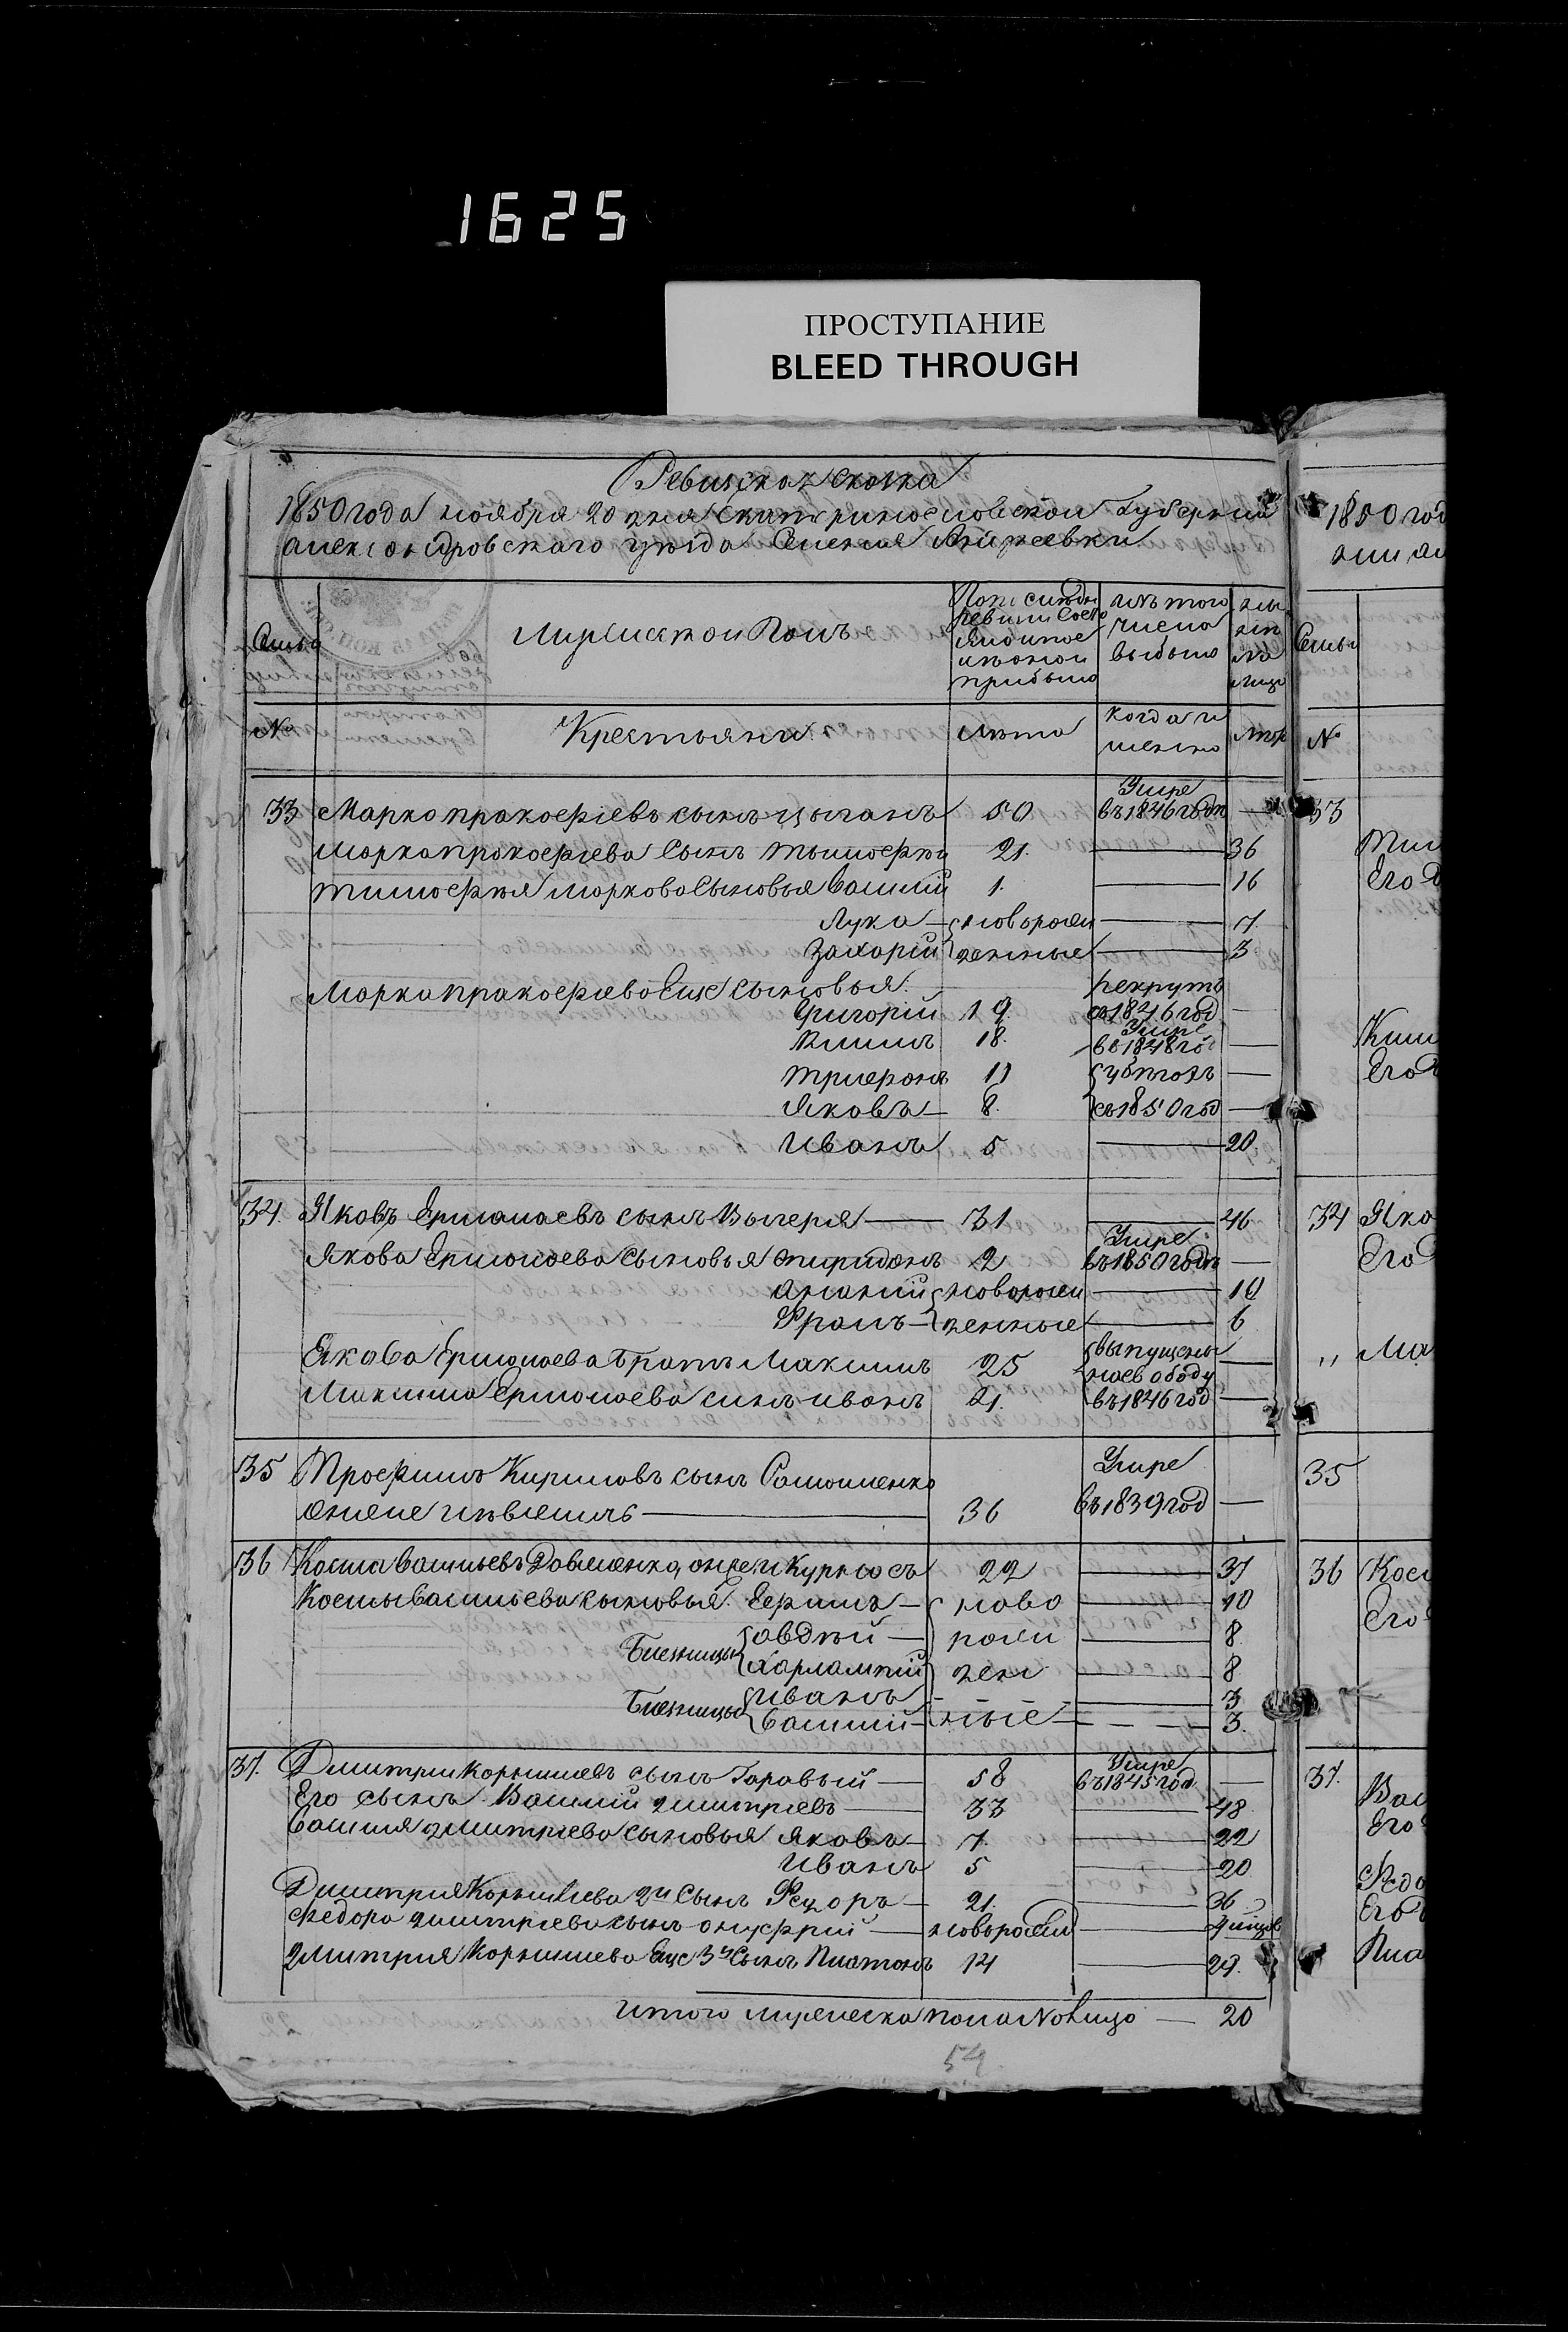 1625
ПРОСТУПАНИЕ
BLEED THROUGH
Ревизская сказка
1850 года ноября 20 дня Екатеринославской Губернии
александровскаго уезда Селения Андреевки
Семьи
Мужеской Полъ
По последней ревизии состояло и после оной прибыло
изъ того числа выбыло
ныне на лицо
Семьи
№
Крестьяне
Лета
когда именно
Лета
№
33 Марко пракофиевъ сынъ цыганъ 50 Умре въ 1846 годе —
Марка пракофиева Сынъ тымофей 21. — 36
тимофея маркова Сыновья Василий 1. — 16
Лука — новорож — 7.
Захарий денные — 3
Марка пракофиева Еще сыновья
Григорий 19. рекрутъ въ 1846 год —
Климъ 18. Умре въ 1848 го —
трифонъ 11 —
Яковъ — 8. въ 1850 год —
Иванъ 5 — 20.
34. Яковъ Ермолаевъ сынъ — 31 — 46
Якова Ермолаева Сыновья спиридонъ 2 Умре въ 1850 годъ —
ананий новорож — 10
Фролъ — денные — 6
Якова Ермолаева Братъ Максимъ 25 выпущены на свободу —
Максима Ермолаева синъ иванъ 21. въ 1846 год —
35 Трофимъ Кириловъ сынъ Умре
онже — 36 въ 1839 год —
36 Косма Васильевъ Довженко, онже и Курносъ 22 — 37
Космы Васильева сыновья Ефимъ — ново — 10
Близницы авдей — рож — 8.
Харлампий ден — 8
Близницы Иванъ — 3
Василий — ные — 3.
37. Дмитрий Корнилиевъ сынъ Гаравый — 58 Умре въ 1845 год. —
Его сынъ Василий дмитриевъ — 33 — 48
Василия дмитриева сыновья Яковъ — 7. — 22
Иванъ 5 — 20
Дмитрия Корнилиева 2й Сынъ Федоръ — 21. — 36
Федора дмитриева сынъ онуфрий — новорожд —
дмитрия Корнилиева Еще 3й Сынъ Платонъ 14 — 29.
итого мужеска пола На лицо — 20
54
1850 год
33
34 Яко
Его
35
36 Кос
Его
37.
Вас
Его
Федо
Его
Пла